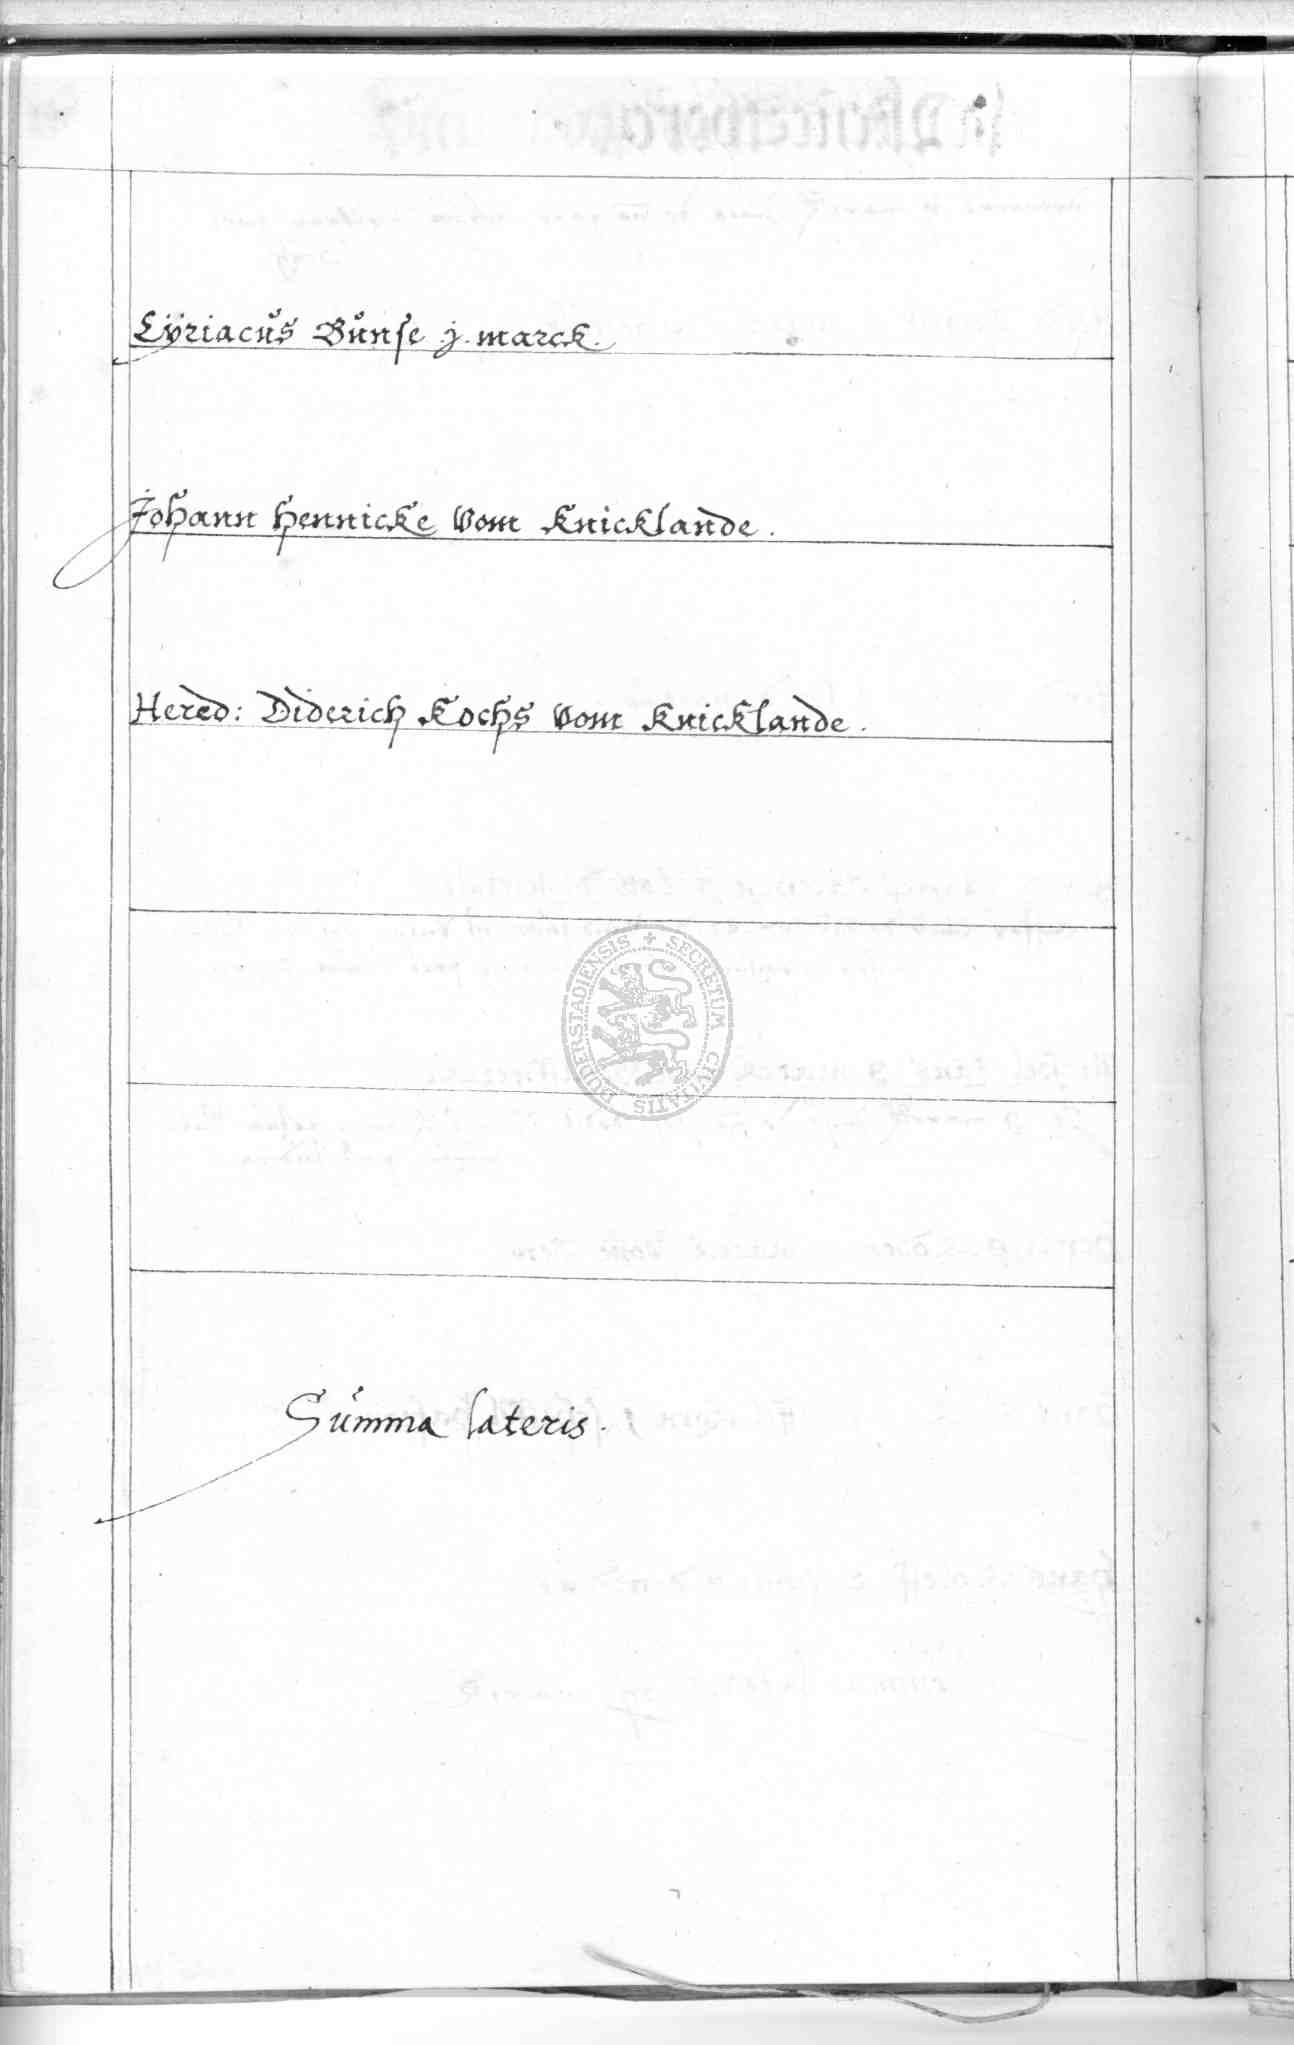 Cÿriacus Bunse j. marck.
Johann Hennicke vom Knicklande.
Hered: Diderich Kochs vom Knicklande.
SECRETUM CIVITATIS DUDERSTADIENSIS
Summa lateris.